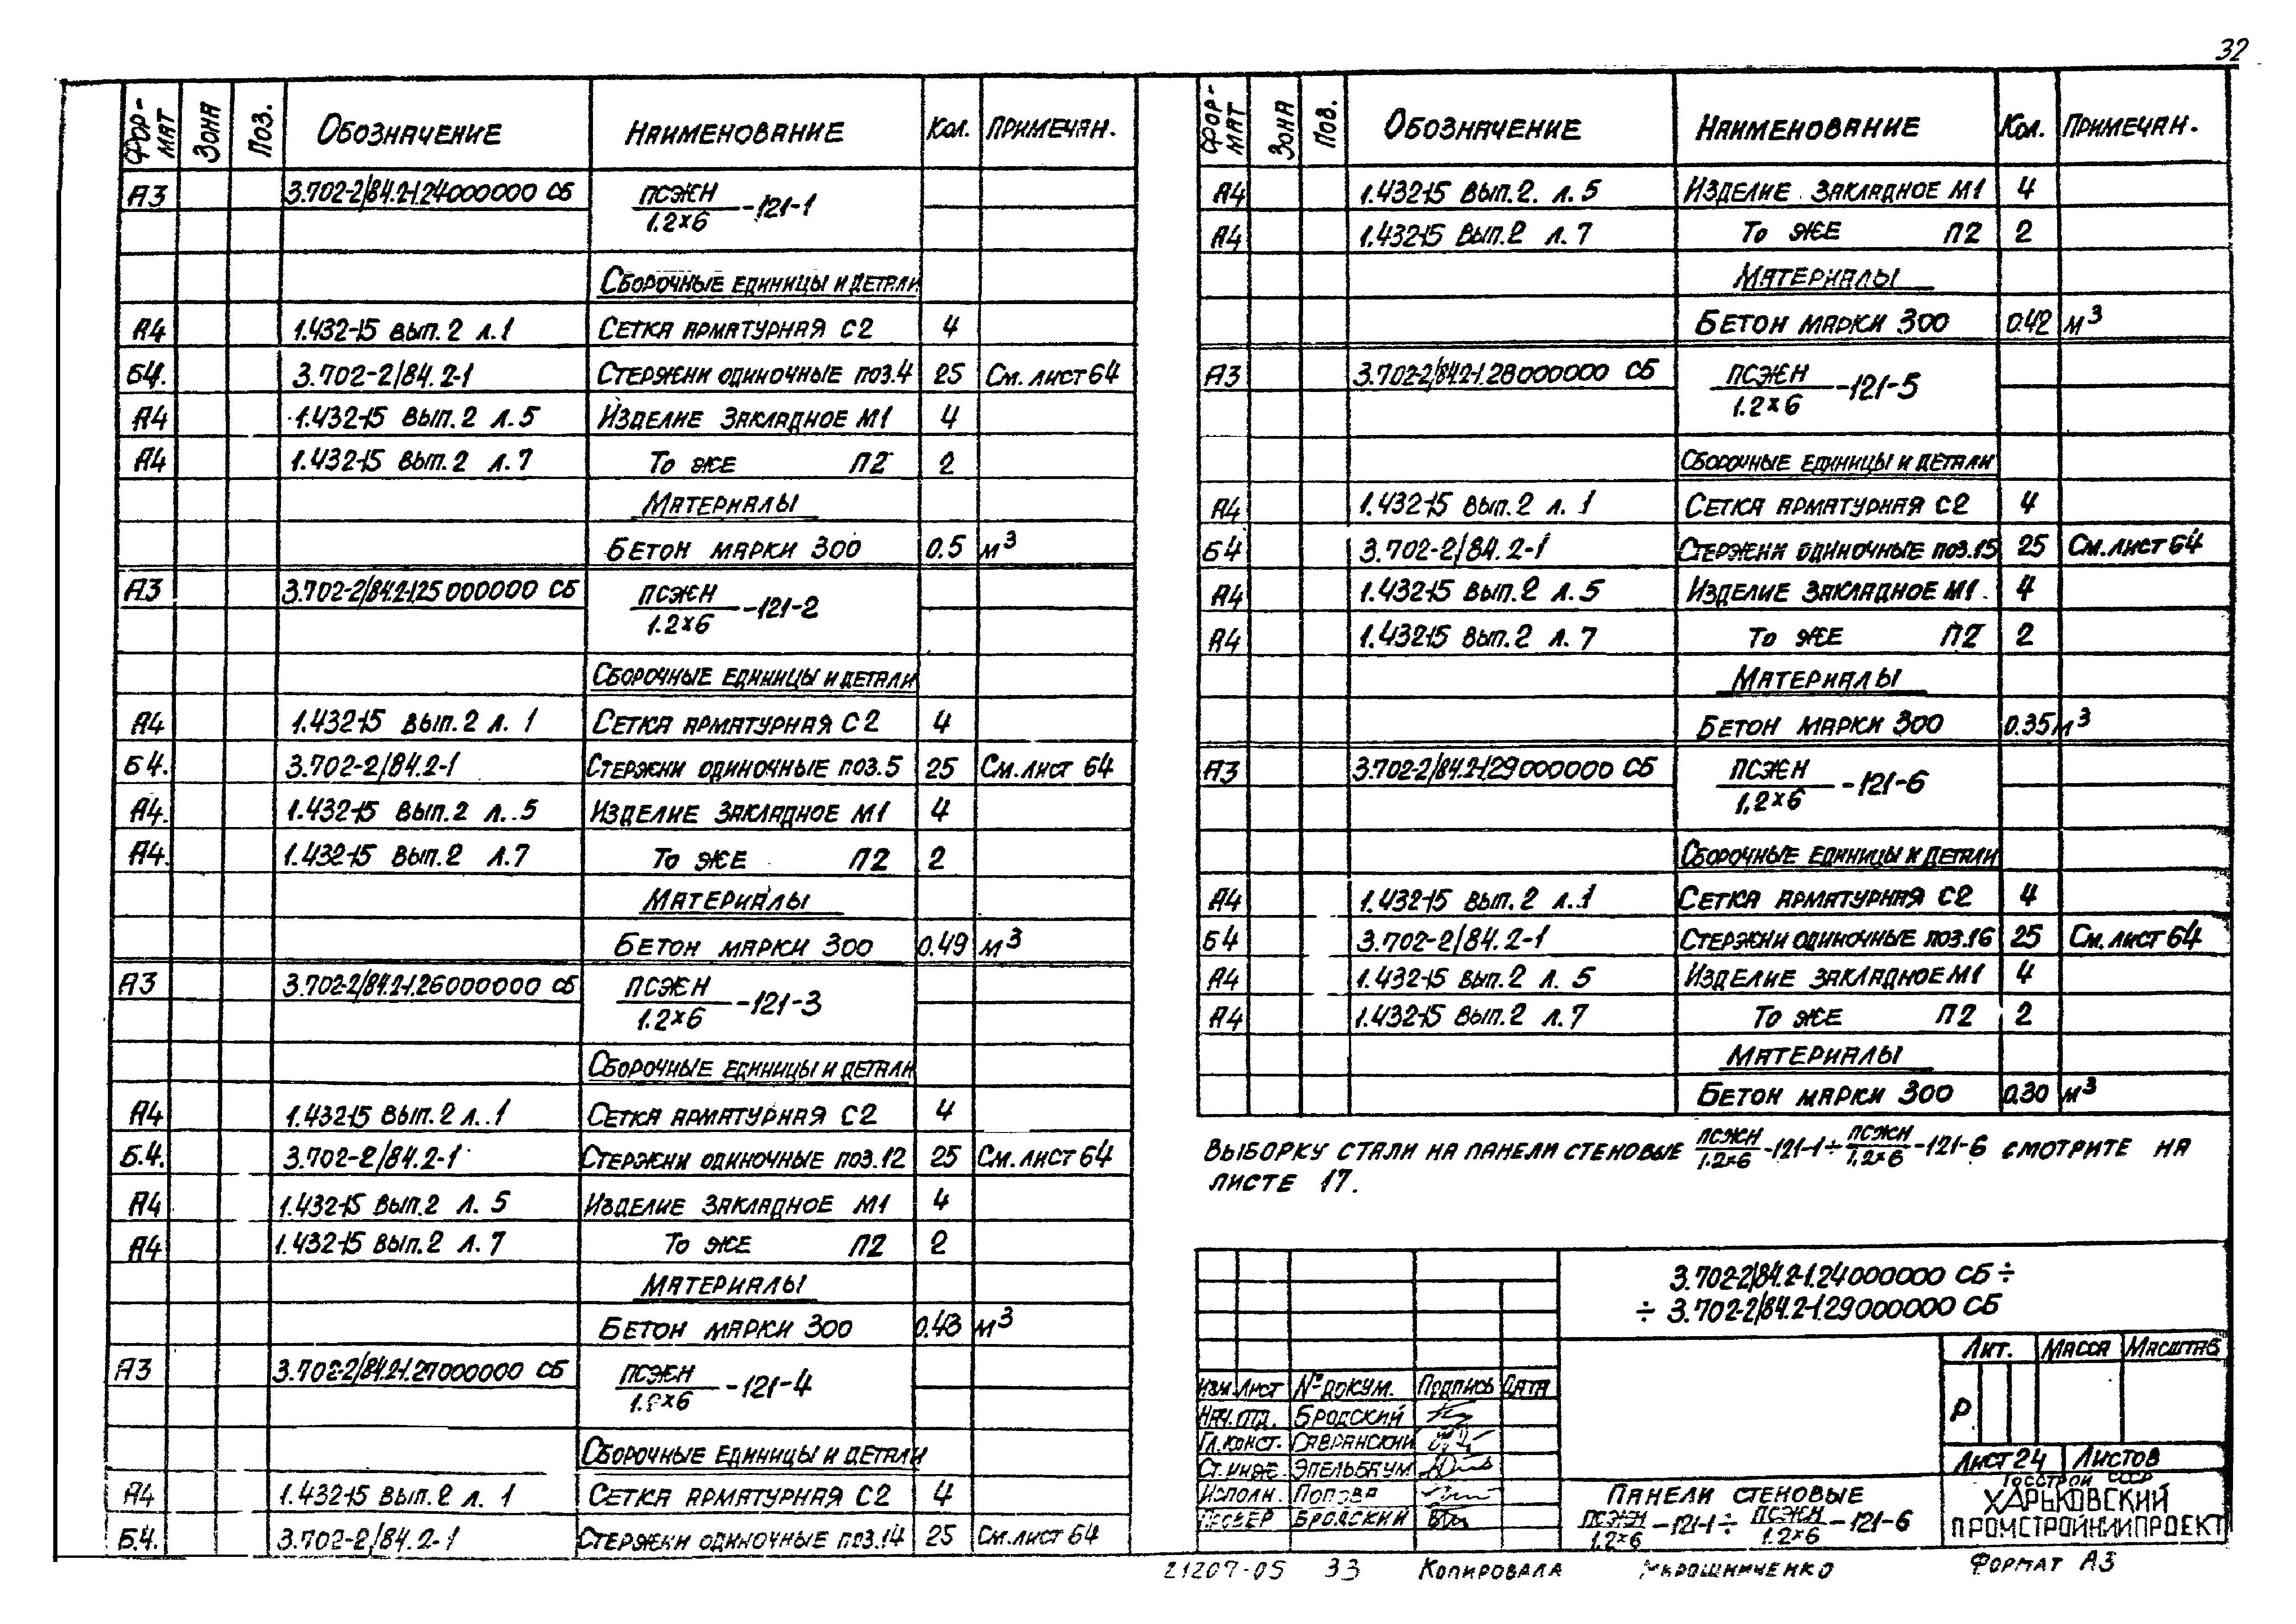 32
ФОРМАТ ЗОНА ПОЗ. ОБОЗНАЧЕНИЕ НАИМЕНОВАНИЕ КОЛ. ПРИМЕЧАН.
А3 3.702-2/84.2-1.24000000 СБ ПСЖН/1.2×6 -121-1
СБОРОЧНЫЕ ЕДИНИЦЫ И ДЕТАЛИ
А4 1.432-15 ВЫП.2 Л.1 СЕТКА АРМАТУРНАЯ С2 4
Б4. 3.702-2/84.2-1 СТЕРЖНИ ОДИНОЧНЫЕ ПОЗ.4 25 СМ. ЛИСТ 64
А4 1.432-15 ВЫП.2 Л.5 ИЗДЕЛИЕ ЗАКЛАДНОЕ М1 4
А4 1.432-15 ВЫП.2 Л.7 ТО ЖЕ П2 2
МАТЕРИАЛЫ
БЕТОН МАРКИ 300 0.5 М³
А3 3.702-2/84.2-1.25000000 СБ ПСЖН/1.2×6 -121-2
СБОРОЧНЫЕ ЕДИНИЦЫ И ДЕТАЛИ
А4 1.432-15 ВЫП.2 Л.1 СЕТКА АРМАТУРНАЯ С2 4
Б4. 3.702-2/84.2-1 СТЕРЖНИ ОДИНОЧНЫЕ ПОЗ.5 25 СМ. ЛИСТ 64
А4. 1.432-15 ВЫП.2 Л.5 ИЗДЕЛИЕ ЗАКЛАДНОЕ М1 4
А4. 1.432-15 ВЫП.2 Л.7 ТО ЖЕ П2 2
МАТЕРИАЛЫ
БЕТОН МАРКИ 300 0.49 М³
А3 3.702-2/84.2-1.26000000 СБ ПСЖН/1.2×6 -121-3
СБОРОЧНЫЕ ЕДИНИЦЫ И ДЕТАЛИ
А4 1.432-15 ВЫП.2 Л.1 СЕТКА АРМАТУРНАЯ С2 4
Б.4. 3.702-2/84.2-1 СТЕРЖНИ ОДИНОЧНЫЕ ПОЗ.12 25 СМ. ЛИСТ 64
А4 1.432-15 ВЫП.2 Л.5 ИЗДЕЛИЕ ЗАКЛАДНОЕ М1 4
А4 1.432-15 ВЫП.2 Л.7 ТО ЖЕ П2 2
МАТЕРИАЛЫ
БЕТОН МАРКИ 300 0.43 М³
А3 3.702-2/84.2-1.27000000 СБ ПСЖН/1.2×6 -121-4
СБОРОЧНЫЕ ЕДИНИЦЫ И ДЕТАЛИ
А4 1.432-15 ВЫП.2 Л.1 СЕТКА АРМАТУРНАЯ С2 4
Б.4. 3.702-2/84.2-1 СТЕРЖНИ ОДИНОЧНЫЕ ПОЗ.14 25 СМ. ЛИСТ 64
ФОРМАТ ЗОНА ПОЗ. ОБОЗНАЧЕНИЕ НАИМЕНОВАНИЕ КОЛ. ПРИМЕЧАН.
А4 1.432-15 ВЫП.2. Л.5 ИЗДЕЛИЕ ЗАКЛАДНОЕ М1 4
А4 1.432-15 ВЫП.2 Л.7 ТО ЖЕ П2 2
МАТЕРИАЛЫ
БЕТОН МАРКИ 300 0.42 М³
А3 3.702-2/84.2-1.28000000 СБ ПСЖН/1.2×6 -121-5
СБОРОЧНЫЕ ЕДИНИЦЫ И ДЕТАЛИ
А4 1.432-15 ВЫП.2 Л.1 СЕТКА АРМАТУРНАЯ С2 4
Б4 3.702-2/84.2-1 СТЕРЖНИ ОДИНОЧНЫЕ ПОЗ.15 25 СМ. ЛИСТ 64
А4 1.432-15 ВЫП.2 Л.5 ИЗДЕЛИЕ ЗАКЛАДНОЕ М1 4
А4 1.432-15 ВЫП.2 Л.7 ТО ЖЕ П2 2
МАТЕРИАЛЫ
БЕТОН МАРКИ 300 0.35 М³
А3 3.702-2/84.2-1.29000000 СБ ПСЖН/1.2×6 -121-6
СБОРОЧНЫЕ ЕДИНИЦЫ И ДЕТАЛИ
А4 1.432-15 ВЫП.2 Л.1 СЕТКА АРМАТУРНАЯ С2 4
Б4 3.702-2/84.2-1 СТЕРЖНИ ОДИНОЧНЫЕ ПОЗ.16 25 СМ. ЛИСТ 64
А4 1.432-15 ВЫП.2 Л.5 ИЗДЕЛИЕ ЗАКЛАДНОЕ М1 4
А4 1.432-15 ВЫП.2 Л.7 ТО ЖЕ П2 2
МАТЕРИАЛЫ
БЕТОН МАРКИ 300 0.30 М³
ВЫБОРКУ СТАЛИ НА ПАНЕЛИ СТЕНОВЫЕ ПСЖН/1.2×6 -121-1÷ ПСЖН/1.2×6 -121-6 СМОТРИТЕ НА
ЛИСТЕ 17.
3.702-2/84.2-1.24000000 СБ ÷
÷ 3.702-2/84.2-1.29000000 СБ
ЛИТ. МАССА МАСШТАБ
ИЗМ. ЛИСТ № ДОКУМ. ПОДПИСЬ ДАТА
НАЧ. ОТД. БРОДСКИЙ
Р
ГЛ. КОНСТ. САВРАНСКИЙ
СТ. ИНЖ. ЭПЕЛЬБАУМ
ЛИСТ 24 ЛИСТОВ
ИСПОЛН. ПОПОВА
ПРОВЕР БРОДСКИЙ
ПАНЕЛИ СТЕНОВЫЕ
ПСЖН/1.2×6 -121-1÷ ПСЖН/1.2×6 -121-6
ГОССТРОЙ СССР
ХАРЬКОВСКИЙ
ПРОМСТРОЙНИИПРОЕКТ
21207-05 33 КОПИРОВАЛА МИРОШНИЧЕНКО ФОРМАТ А3